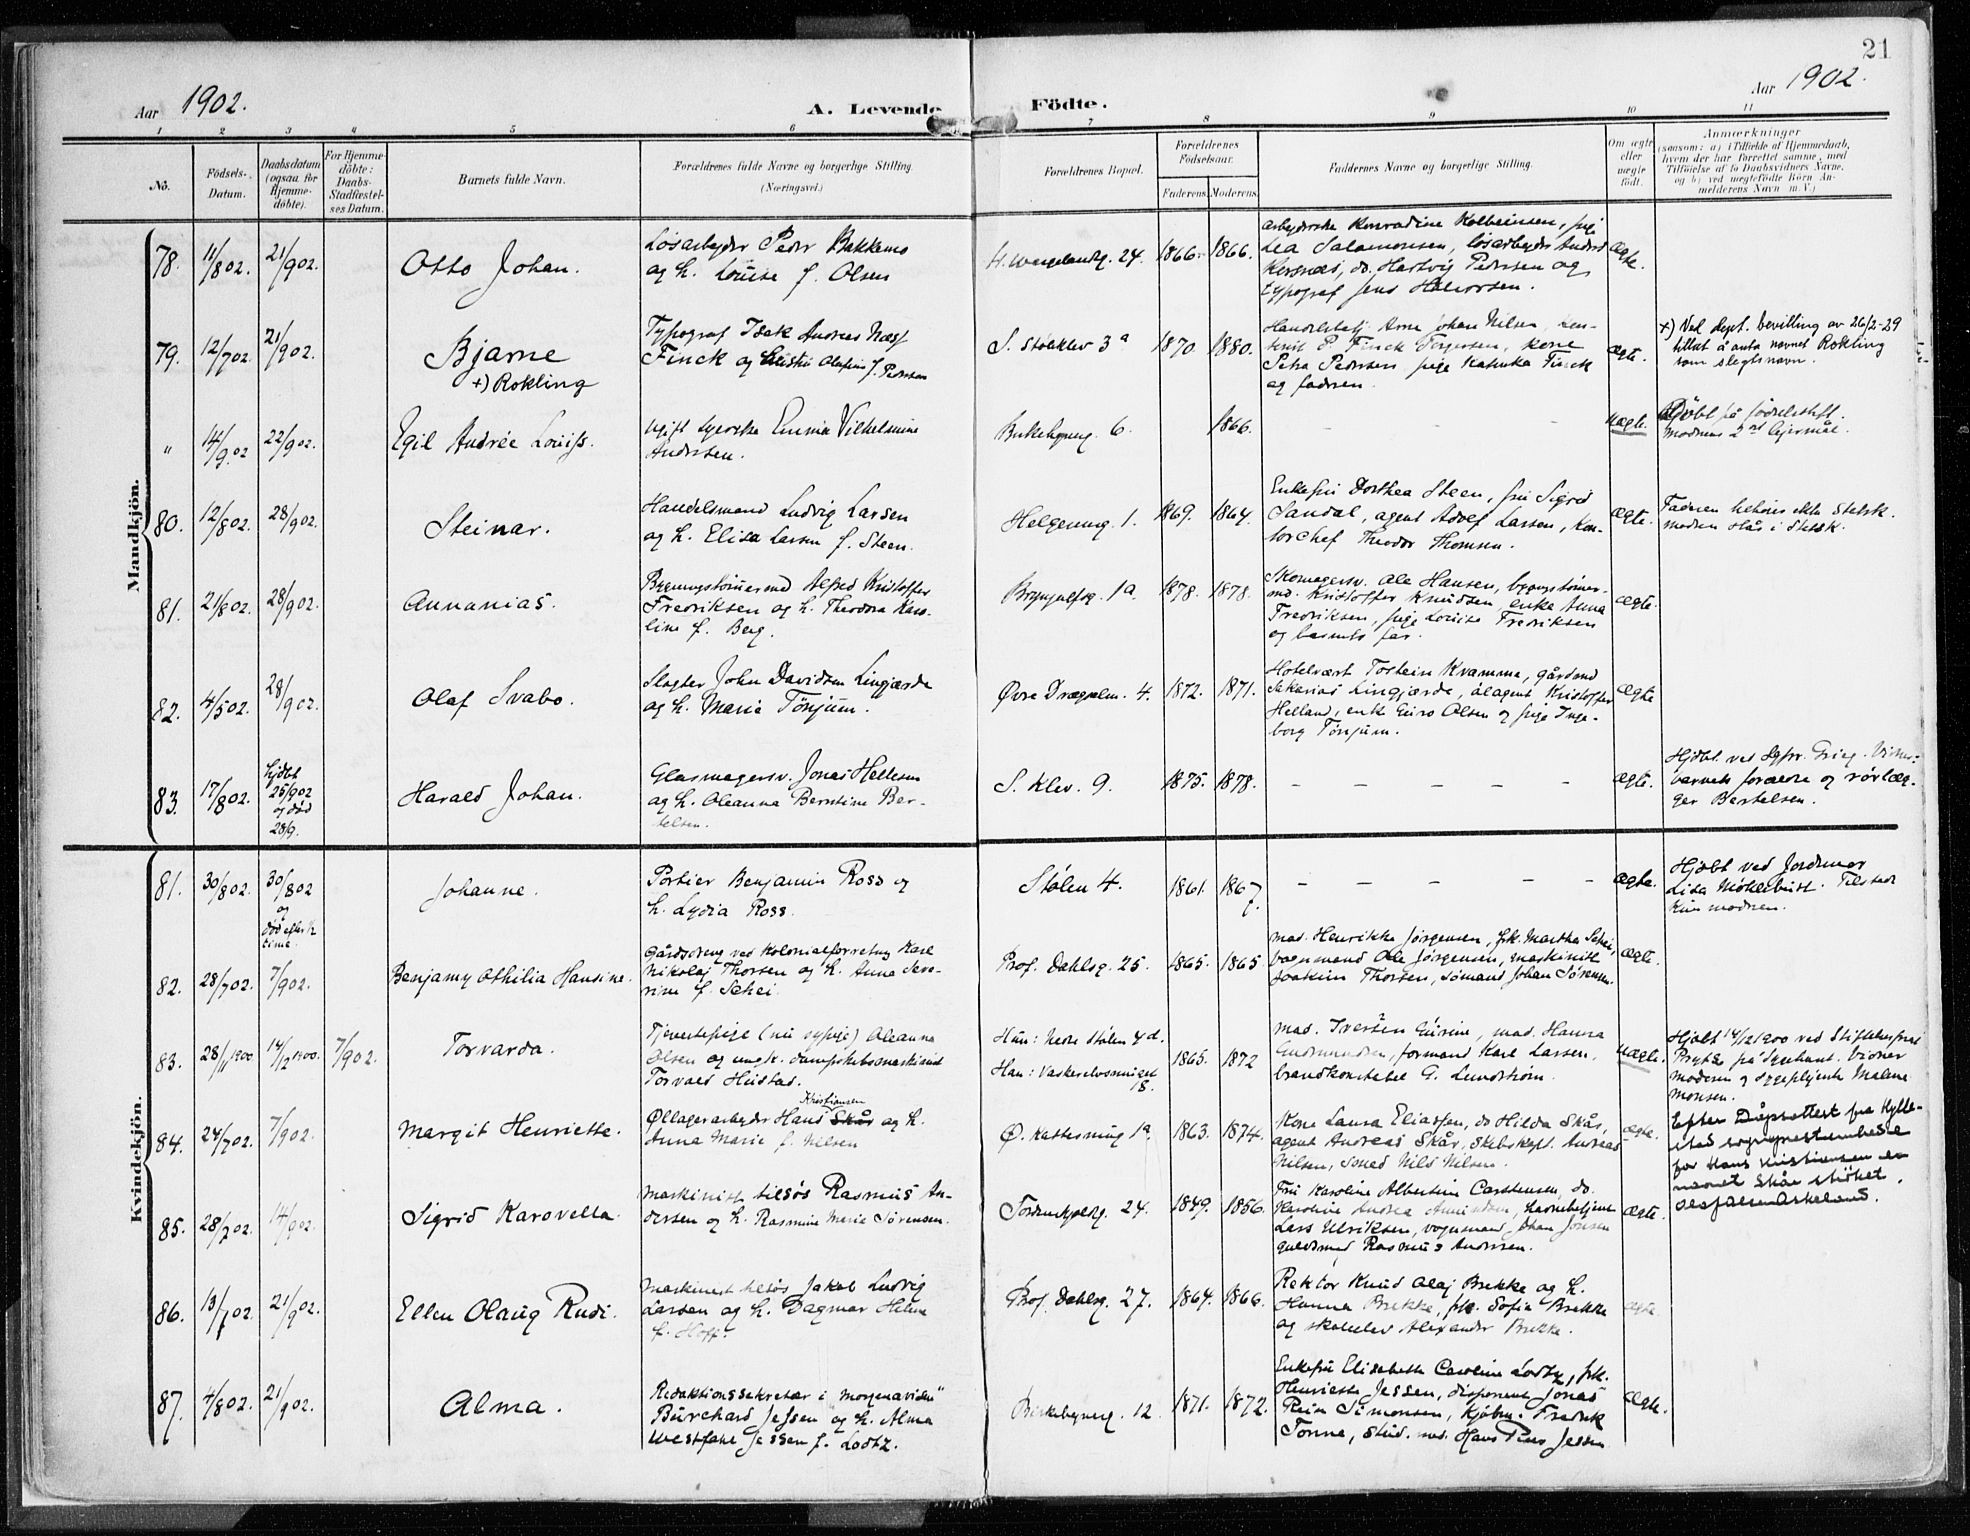 21
Aar 1902.
A. Levende Födte.
Aar 1902.
1 2 3 4 5 6 7 8 9 10 11
No.
Födsels-Datum.
Daabsdatum (ogsaa for Hjemme-döbte).
For Hjemme-döbte: Daabs-Stadfæstel-ses Datum.
Barnets fulde Navn.
Forældrenes fulde Navne og borgerlige Stilling.
(Næringsvei.)
Forældrenes Bopæl.
Forældrenes Födselsaar.
Faderens. Moderens.
Faddernes Navne og borgerlige Stilling.
Om ægte eller uægte födt.
Anmærkninger
(saasom: a) i Tilfælde af Hjemmedaab,
hvem der har forrettet samme, med
Tilföielse af to Daabsvidners Navne,
og b) ved uægtefödte Börn An-
melderens Navn m. V.)
Mandkjön.
78. 11/8 02. 21/9 02.
Otto Johan.
Løsarbeyder Peder Bekkemo
og h. Louise f. Olsen
H. Wergelandsg. 24. 1866. 1866.
arbeyderske Konradine Kolbeinsen, pige
Lea Salamonsen, løsarbeyder Anders
do. Hartvig Pedersen og
typograf Jens Halvorsen.
Ægte.
79. 12/7 02. 21/9 02.
Bjarne
+) Rokling
Typograf Isak Andreas Næss
Finck og Kristi Olefine f. Pedersen
S. Stølklev 3a 1870 1880.
Handelsbetj. Arne Johan Nilsen,
P. Finck Jørgensen, kone
Petra Pedersen pige Katinka Finck
og faderen.
Ægte.
+) Ved dept. bevilling av 26/2-29
tillatt å anta navnet Rokling
som slegtsnavn.
" 14/9 02 22/9 02.
Egil Andrée Louiss.
Ugift syerske Emma Vilhelmine
Andersen.
Birkebynerg. 6. 1866.
Uægte.
Døbt på fødselsstift.
Moderens 2det leiermål.
80. 12/8 02. 28/9 02.
Steinar.
Handelsmand Ludvig Larsen
og h. Elisa Larsen f. Steen.
Helgesensg. 1. 1869. 1864.
Enkefru Dorthea Steen, fru Sigrid
Sandal, agent Adolf Larsen, Kon-
torchef Theodor Thomsen.
Ægte.
Faderen tilhører ikke Statsk.
moderen står i Statsk.
81. 21/8 02. 28/9 02.
Annanias.
Bygningstømmermd Alfred Kristoffer
Fredriksen og h. Theodora Karo-
line f. Berg.
Brynjulfsg. 1a. 1878. 1878.
Skomagersv. Ole Hansen, bygngstømer-
md. Kristoffer Knudsen, enke Anna
Fredriksen, pige Louise Fredriksen
og barnets far.
Ægte.
82. 4/5 02. 28/9 02.
Olaf Svabo.
Slagter John Davidsen Lingjærde
og h. Marie Tønjum.
Øvre Drægealm. 4. 1872. 1871.
Hotelvært Torstein Kvamme, gårdmd
Sakarias Lingjærde, ølagent Kristoffer
Helland, enke Guro Olsen og pige Inge-
borg Tønjum.
Ægte
83. 17/8 02.
hjdbt 25/9 02 og død 28/9.
Harald Johan.
Glasmagersv. Jonas Hellum
og h. Oleanna Berntine Ber-
telsen.
S. Klev. 9. 1875. 1878.
Ægte.
Hjdbt. ved Sgpr. Grieg. Vidner:
barnets forældre og rørlæg-
ger Bertelsen.
Kvindekjön.
81. 30/8 02. 30/8 02 og død efter ½ time.
Johanne.
Portier Benjamin Ross og
h. Lydia Ross.
Stølen 4. 1861. 1867.
Ægte.
Hjdbt ved Jordmor
Lisa Møhlebust. Tilstede
kun moderen.
82. 28/7 02. 7/9 02.
Benjamy Othilia Hansine.
Gårdsdreng ved Kolonialforretng Karl
Nikolaj Thorsen og h. Anna Seve-
rine f. Schei.
Prof. Dahlsg. 25. 1865. 1865.
mad. Henrikke Jørgensen, frk. Martha Schei,
vognmand Ole Jørgensen, maskinist
Joakim Thorsen, sømand Johan Sørensen.
Ægte.
83. 28/11 1900. 14/12 1900. 7/9 02.
Torvarda.
Tjenestepige (nu sypige) Oleanna
Olsen og ungk. dampskibsmaskinist
Torvald Heistad.
Hun: Nedre Stølen 4d.
Han: Vaskerelvsmuget 18.
1865. 1872
mad. Iversen Gurine, mad. Hanna
Gudmundsen, formand Karl Larsen,
brandkonstabel G. Lundstrøm.
Uægte.
Hjdbt 14/12 1900 ved Stiftskaptl
Prytz på Sygehuset. Vidner
moderen og sygeplejerske Malene
Monsen.
84. 24/7 02. 7/9 02.
Margit Henriette.
Kristiansen
Øllagerarbeyder Hans Skår og h.
Anna Marie f. Nilsen
Ø. Kattesmug 1a. 1863. 1874.
Kone Laura Eliassen, do Hilda Skår,
agent Andreas Skår, skibskapt. Andreas
Nilsen, smed Nils Nilsen.
Ægte.
Efter Dåpsattest fra Hylle-
stad sogneprestembede
for Hans Kristiansen er
navnet Skår strøket.
85. 28/7 02. 14/9 02.
Sigrid Karovella.
Maskinist tilsøs Rasmus An-
dersen og h. Rasmine Marie Sørensen.
Tordenskjoldsg. 24. 1849. 1856.
Fru Karoline Albertine Carstensen, do.
Karoline Andrea Amundsen, havnebetjent
Lars Ulriksen, vognmand Johan Jonsen
guldsmed Rasmus Andersen.
Ægte.
86. 13/7 02. 21/9 02.
Ellen Olaug Rudi.
Maskinist tilsøs Jakob Ludvig
Larsen og h. Dagmar Helene
f. Hoff.
Prof. Dahlsg. 27. 1864. 1866.
Rektor Knud Olaj Brekke og h.
Hanna Brekke, frk. Sofie Brekke
og skoleelev Alexander Brekke.
Ægte.
87. 4/8 02. 21/9 02.
Alma.
Redaktionssekretær i „Morgenavisen"
Burchard Jessen og h. Alma
Westfahl Jessen f. Lodtz.
Birkebynerg. 12. 1871. 1872.
Enkefru Elisabeth Caroline Lodtz, frk.
Henriette Jessen, disponent Jonas
Rein Simonsen, Kjøbm. Fredrik
Tonne, stud. med. Hans Jessen
Ægte.